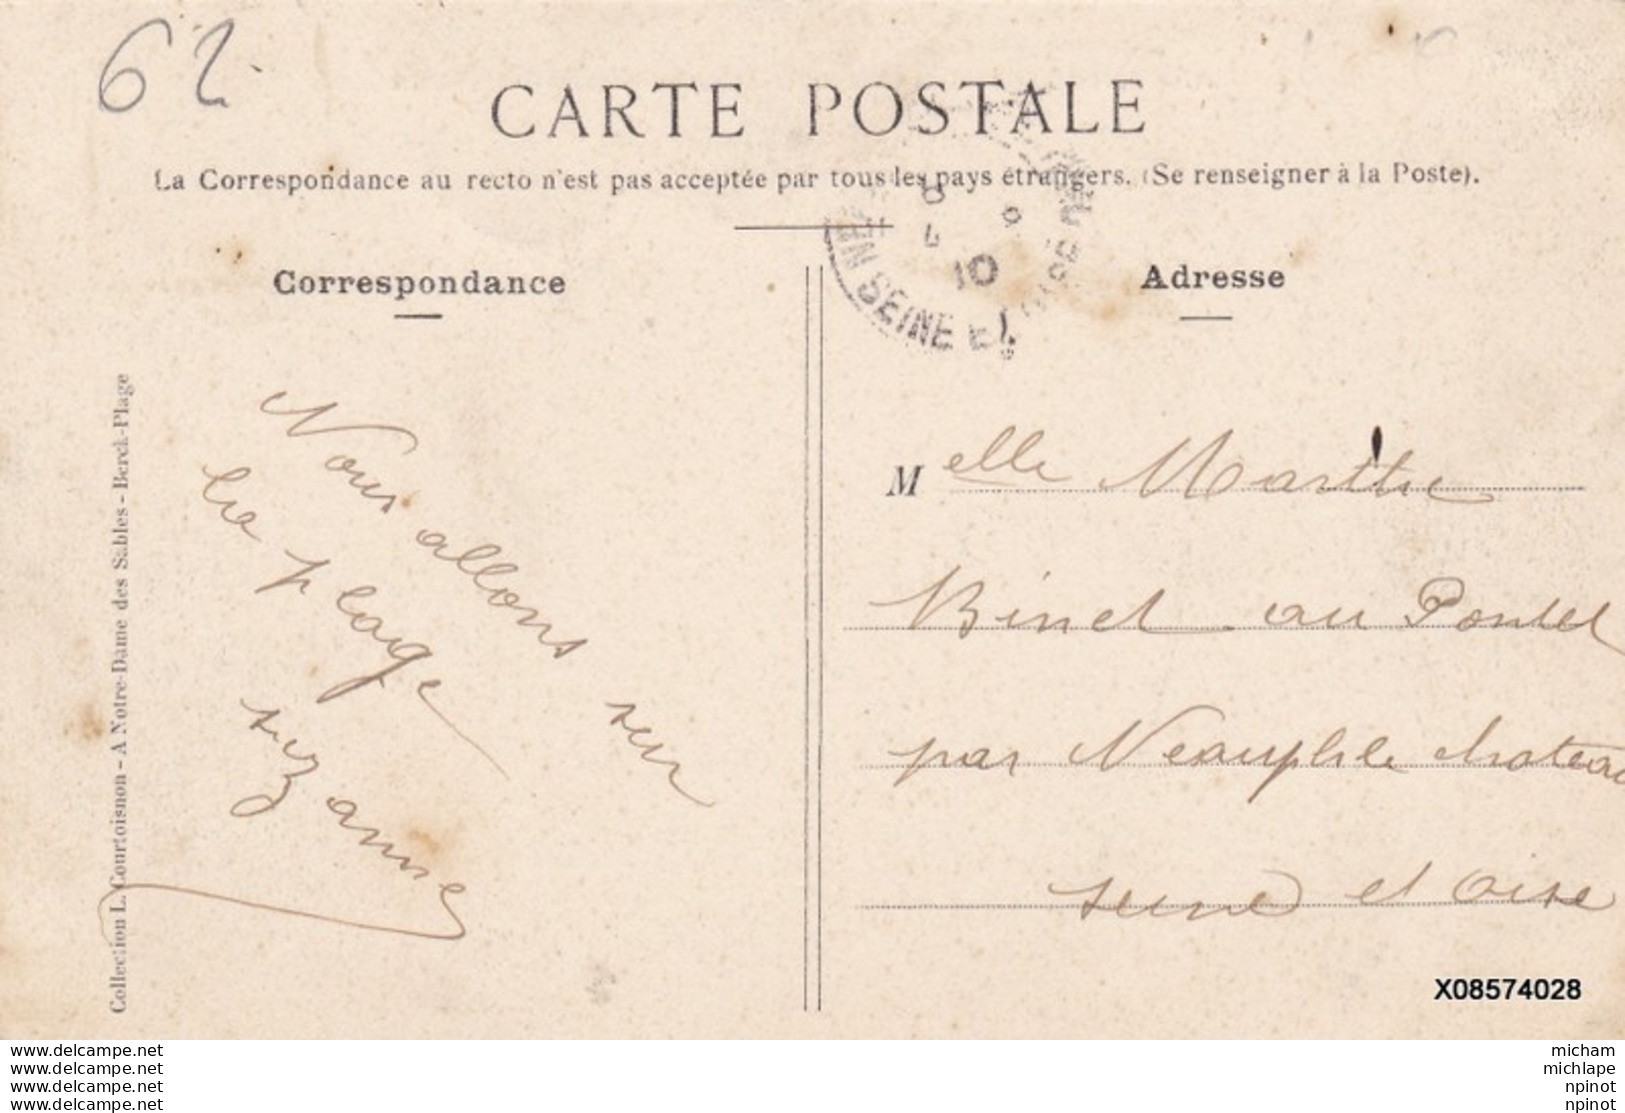 62
CARTE POSTALE
La Correspondance au recto n'est pas acceptée par tous les pays étrangers. (Se renseigner à la Poste).
EN SEINE ET
10
Correspondance
Nous allons sur
la plage
suzanne
Collection L. Courtoisnon - A Notre-Dame des Sables - Berck-Plage
Adresse
Melle Marthe
Binet au Pontel
par Neauphle chateau
seine et oise
X08574028
www.delcampe.net
www.delcampe.net
www.delcampe.net
www.delcampe.net
micham
michlape
npinot
npinot